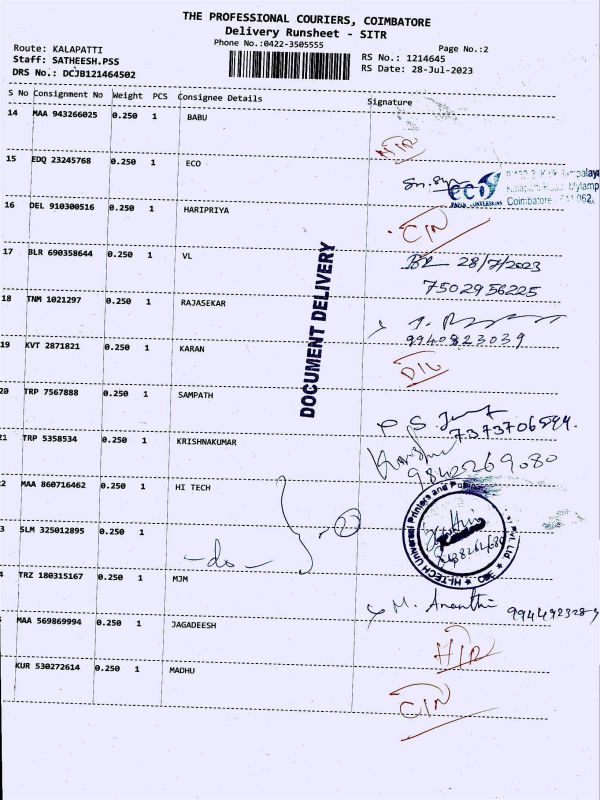 THE PROFESSIONAL COURIERS, COIMBATORE
Delivery Runsheet - SITR
Phone No.:0422-3505555
Page No.:2
Route: KALAPATTI
Staff: SATHEESH.PSS
DRS No.: DCJB121464502
RS No.: 1214645
RS Date: 28-Jul-2023
S No Consignment No Weight PCS Consignee Details Signature
14 MAA 943266025 0.250 1 BABU
15 EDQ 23245768 0.250 1 ECO
eco
Coimbatore
16 DEL 910300516 0.250 1 HARIPRIYA
C/N
17 BLR 690358644 0.250 1 VL
28/7/2023
7502956225
18 TNM 1021297 0.250 1 RAJASEKAR
9940823039
19 KVT 2871821 0.250 1 KARAN
D/L
DOCUMENT DELIVERY
20 TRP 7567888 0.250 1 SAMPATH
21 TRP 5358534 0.250 1 KRISHNAKUMAR
9842269080
2 MAA 860716462 0.250 1 HI TECH
2
HI-TECH Universal Printers and Pvt. Ltd
3 SLM 325012895 0.250 1
-do-
4 TRZ 180315167 0.250 1 MJM
M. Ananthi
MAA 569869994 0.250 1 JAGADEESH
KUR 530272614 0.250 1 MADHU
C/N